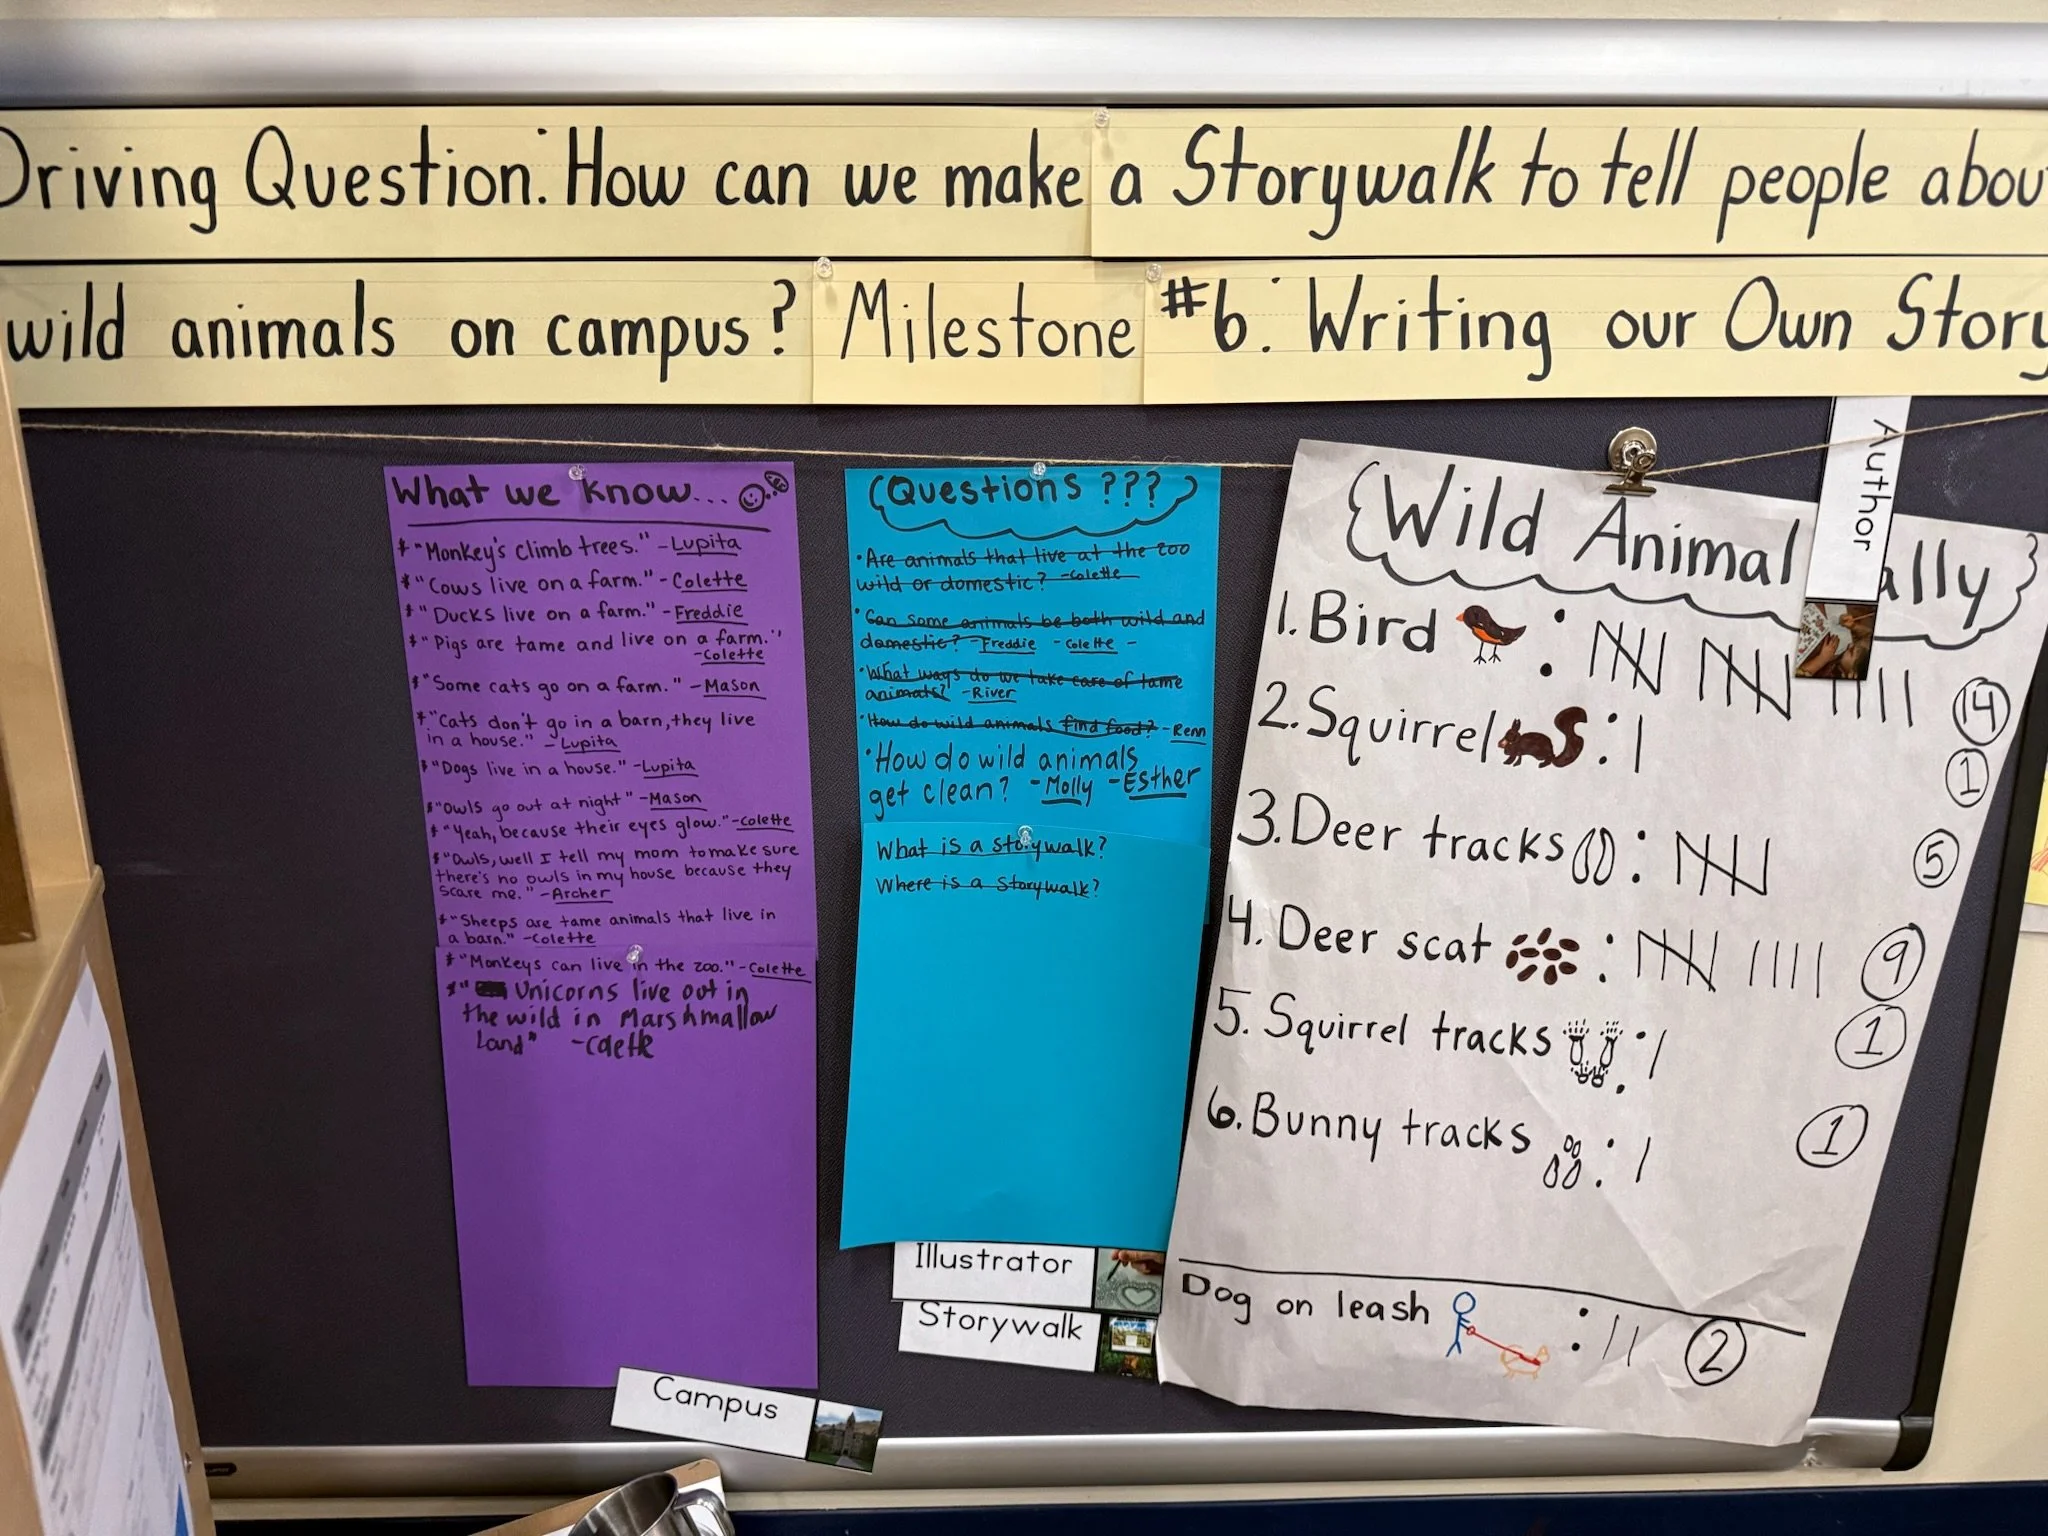 Driving Question: How can we make a Storywalk to tell people abou
wild animals on campus? Milestone #6: Writing our Own Story
What we know...
* "Monkey's climb trees." - Lupita
* "Cows live on a farm." - Colette
* "Ducks live on a farm." - Freddie
* "Pigs are tame and live on a farm."
- Colette
* "Some cats go on a farm." - Mason
* "Cats don't go in a barn, they live
in a house." - Lupita
* "Dogs live in a house." - Lupita
* "Owls go out at night" - Mason
* "Yeah, because their eyes glow." - Colette
* "Owls, well I tell my mom to make sure
there's no owls in my house because they
scare me." - Archer
* "Sheeps are tame animals that live in
a barn." - Colette
* "Monkeys can live in the zoo." - Colette
* " Unicorns live out in
the wild in Marshmallow
Land" - Colette
Questions ???
• Are animals that live at the zoo
wild or domestic? - Colette
• Can some animals be both wild and
domestic? - Freddie - Colette -
• What ways do we take care of tame
animals? - River
• How do wild animals find food? - Renn
• How do wild animals
get clean? - Molly - Esther
What is a storywalk?
Where is a Storywalk?
Illustrator
Storywalk
Campus
Author
Wild Animal ally
1. Bird : 14
2. Squirrel : 1
3. Deer tracks : 5
4. Deer scat : 9
5. Squirrel tracks : 1
6. Bunny tracks : 1
Dog on leash : 2